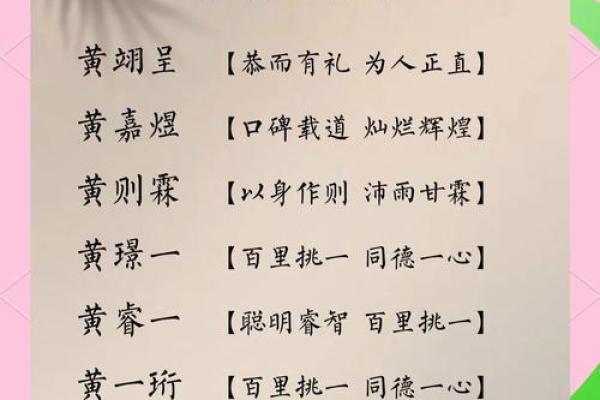 黄翊呈 【恭而有礼 为人正直】
黄嘉煜 【口碑载道 灿烂辉煌】
黄则霖 【以身作则 沛雨甘霖】
黄璟一 【百里挑一 同德一心】
黄睿一 【聪明睿智 百里挑一】
黄一珩 【百里挑一 同德一心】